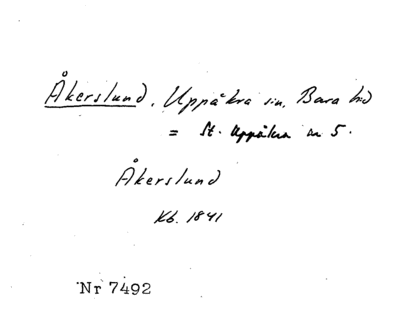 Åkerslund, Uppåkra sn, Bara hd
= St. Uppåkra nr 5.
Åkerslund
Kb. 1841
Nr 7492